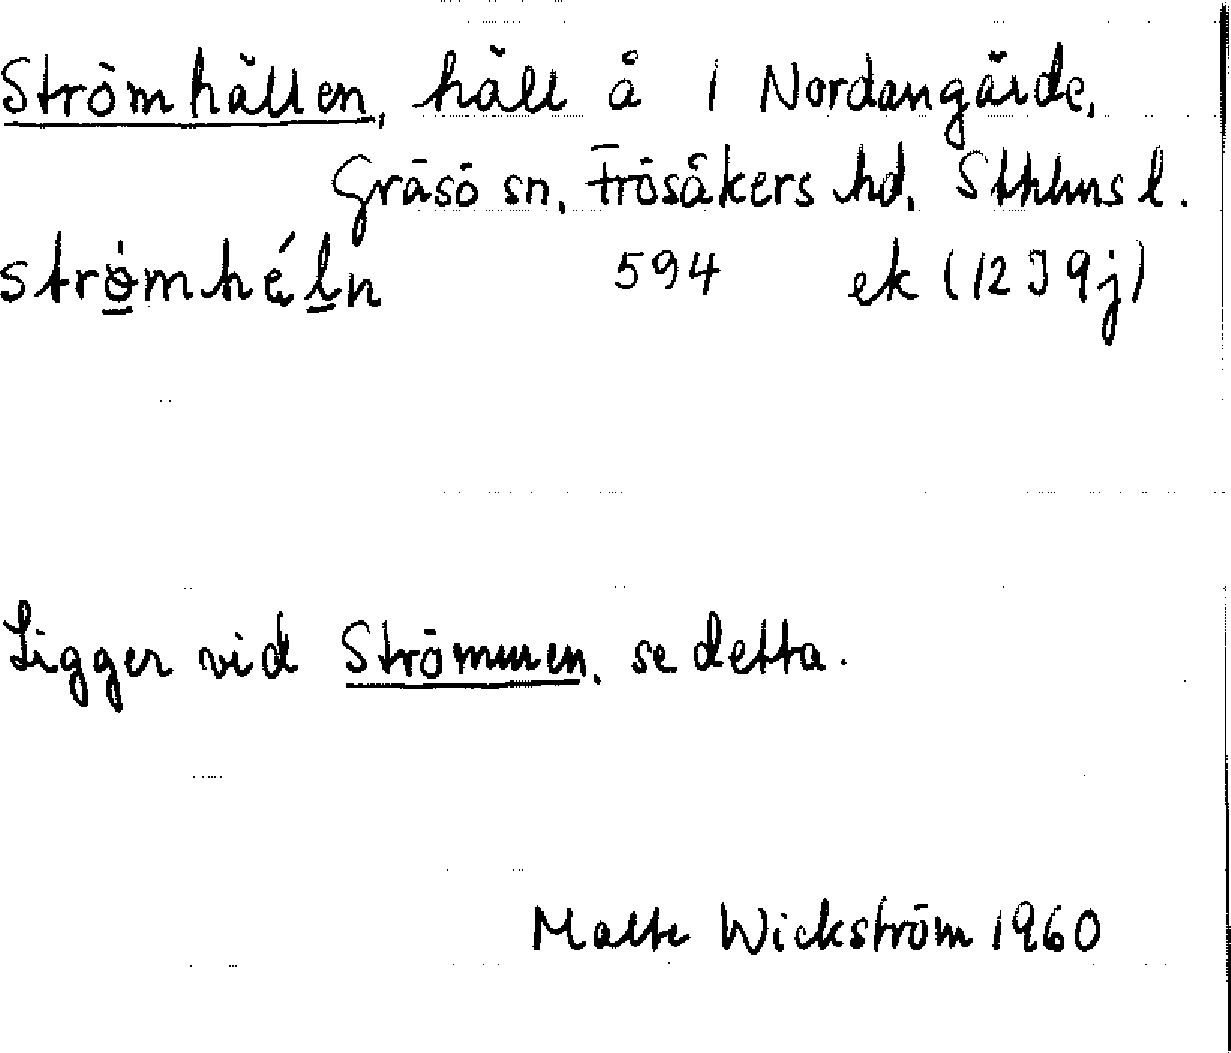 Strömhällen, häll å 1 Nordangärde,
Gräsö sn, Frösåkers hd, Sthlms l.
strömhéln 594 ek (12 I 9 j)
Ligger vid Strömmen, se detta.
Malte Wickström 1960